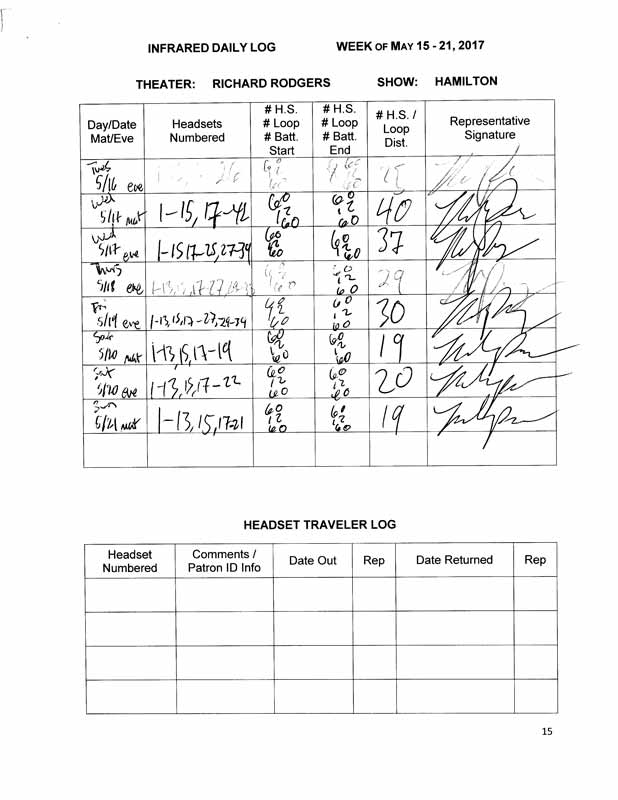 INFRARED DAILY LOG WEEK OF MAY 15 - 21, 2017
THEATER: RICHARD RODGERS SHOW: HAMILTON
Day/Date Mat/Eve
Headsets Numbered
# H.S. # Loop # Batt. Start
# H.S. # Loop # Batt. End
# H.S. / Loop Dist.
Representative Signature
Tues 5/16 eve
Wed 5/17 mat 1-15, 17-42 60 12 60 60 12 60 40
Wed 5/17 eve 1-15 17-25, 27-39 60 12 60 60 12 60 37
Thurs 5/18 eve 60 12 60 29
Fri 5/19 eve 1-13, 15, 17-27, 29-34 60 12 60 30
Sat 5/20 mat 1-13, 15, 17-19 60 12 60 60 12 60 19
Sat 5/20 eve 1-13, 15, 17-22 60 12 60 60 12 60 20
Sun 5/21 mat 1-13, 15, 17-21 60 12 60 60 12 60 19
HEADSET TRAVELER LOG
Headset Numbered
Comments / Patron ID Info
Date Out
Rep
Date Returned
Rep
15